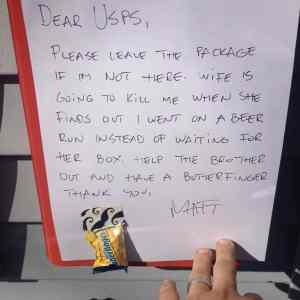 DEAR USPS,
PLEASE LEAVE THE PACKAGE
IF IM NOT HERE. WIFE IS
GOING TO KILL ME WHEN SHE
FINDS OUT I WENT ON A BEER
RUN INSTEAD OF WAITING FOR
HER BOX. HELP THE BROTHER
OUT AND HAVE A BUTTERFINGER
THANK YOU,
MATT